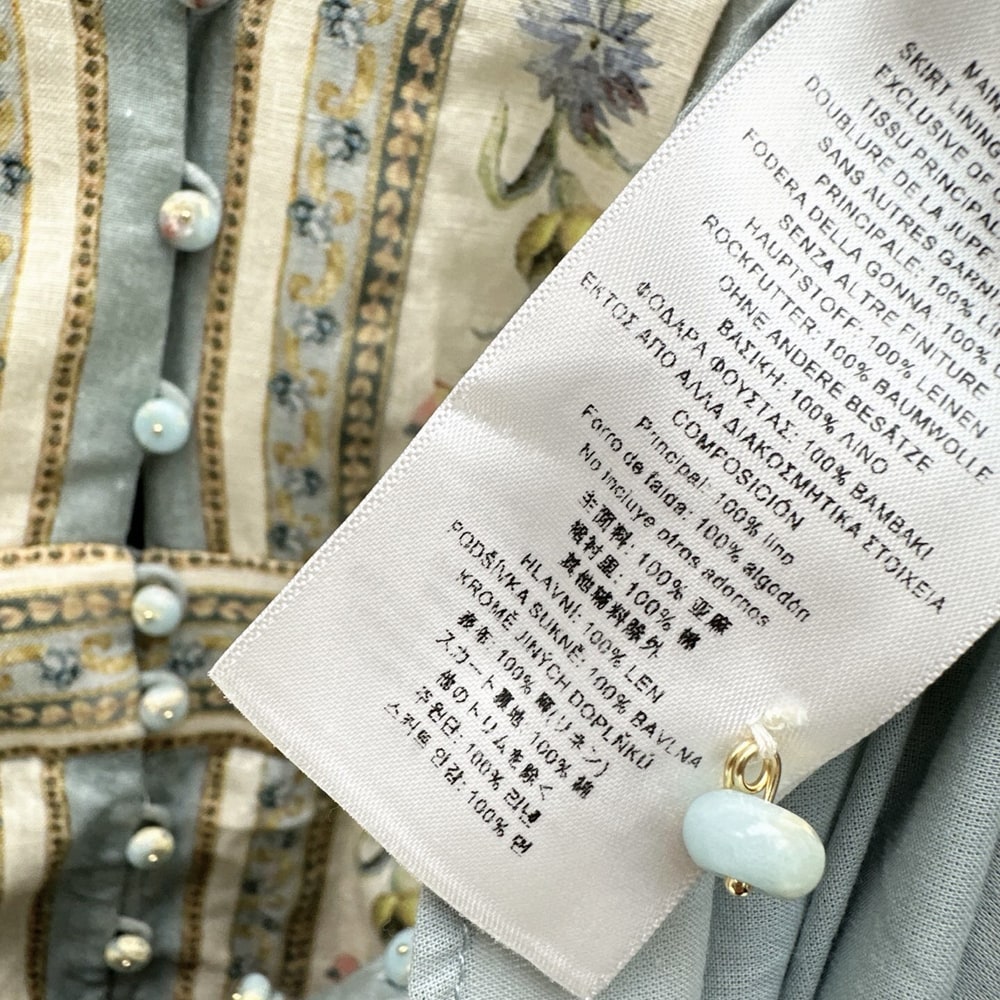 MAIN
SKIRT LINING
EXCLUSIVE OF
TISSU PRINCIPAL
DOUBLURE DE LA JUPE
SANS AUTRES GARNI
PRINCIPALE: 100% LI
FODERA DELLA GONNA: 100%
SENZA ALTRE FINITURE
HAUPTSTOFF: 100% LEINEN
ROCKFUTTER: 100% BAUMWOLLE
OHNE ANDERE BESÄTZE
ΒΑΣΙΚΗ: 100% ΛΙΝΟ
ΦΟΔΑΡΑ ΦΟΥΣΤΑΣ: 100% ΒΑΜΒΑΚΙ
ΕΚΤΟΣ ΑΠΟ ΑΛΛΑ ΔΙΑΚΟΣΜΗΤΙΚΑ ΣΤΟΙΧΕΙΑ
COMPOSICIÓN
Principal: 100% lino
Forro de falda: 100% algodón
No incluye otros adornos
主面料: 100% 亚麻
裙衬里: 100% 棉
其他辅料除外
HLAVNÍ: 100% LEN
PODŠÍVKA SUKNĚ: 100% BAVLNA
KROMĚ JINÝCH DOPLŇKŮ
表布: 100% 麻(リネン)
スカート裏地 100% 綿
他のトリムを除く
주원단: 100% 리넨
스커트 안감: 100% 면